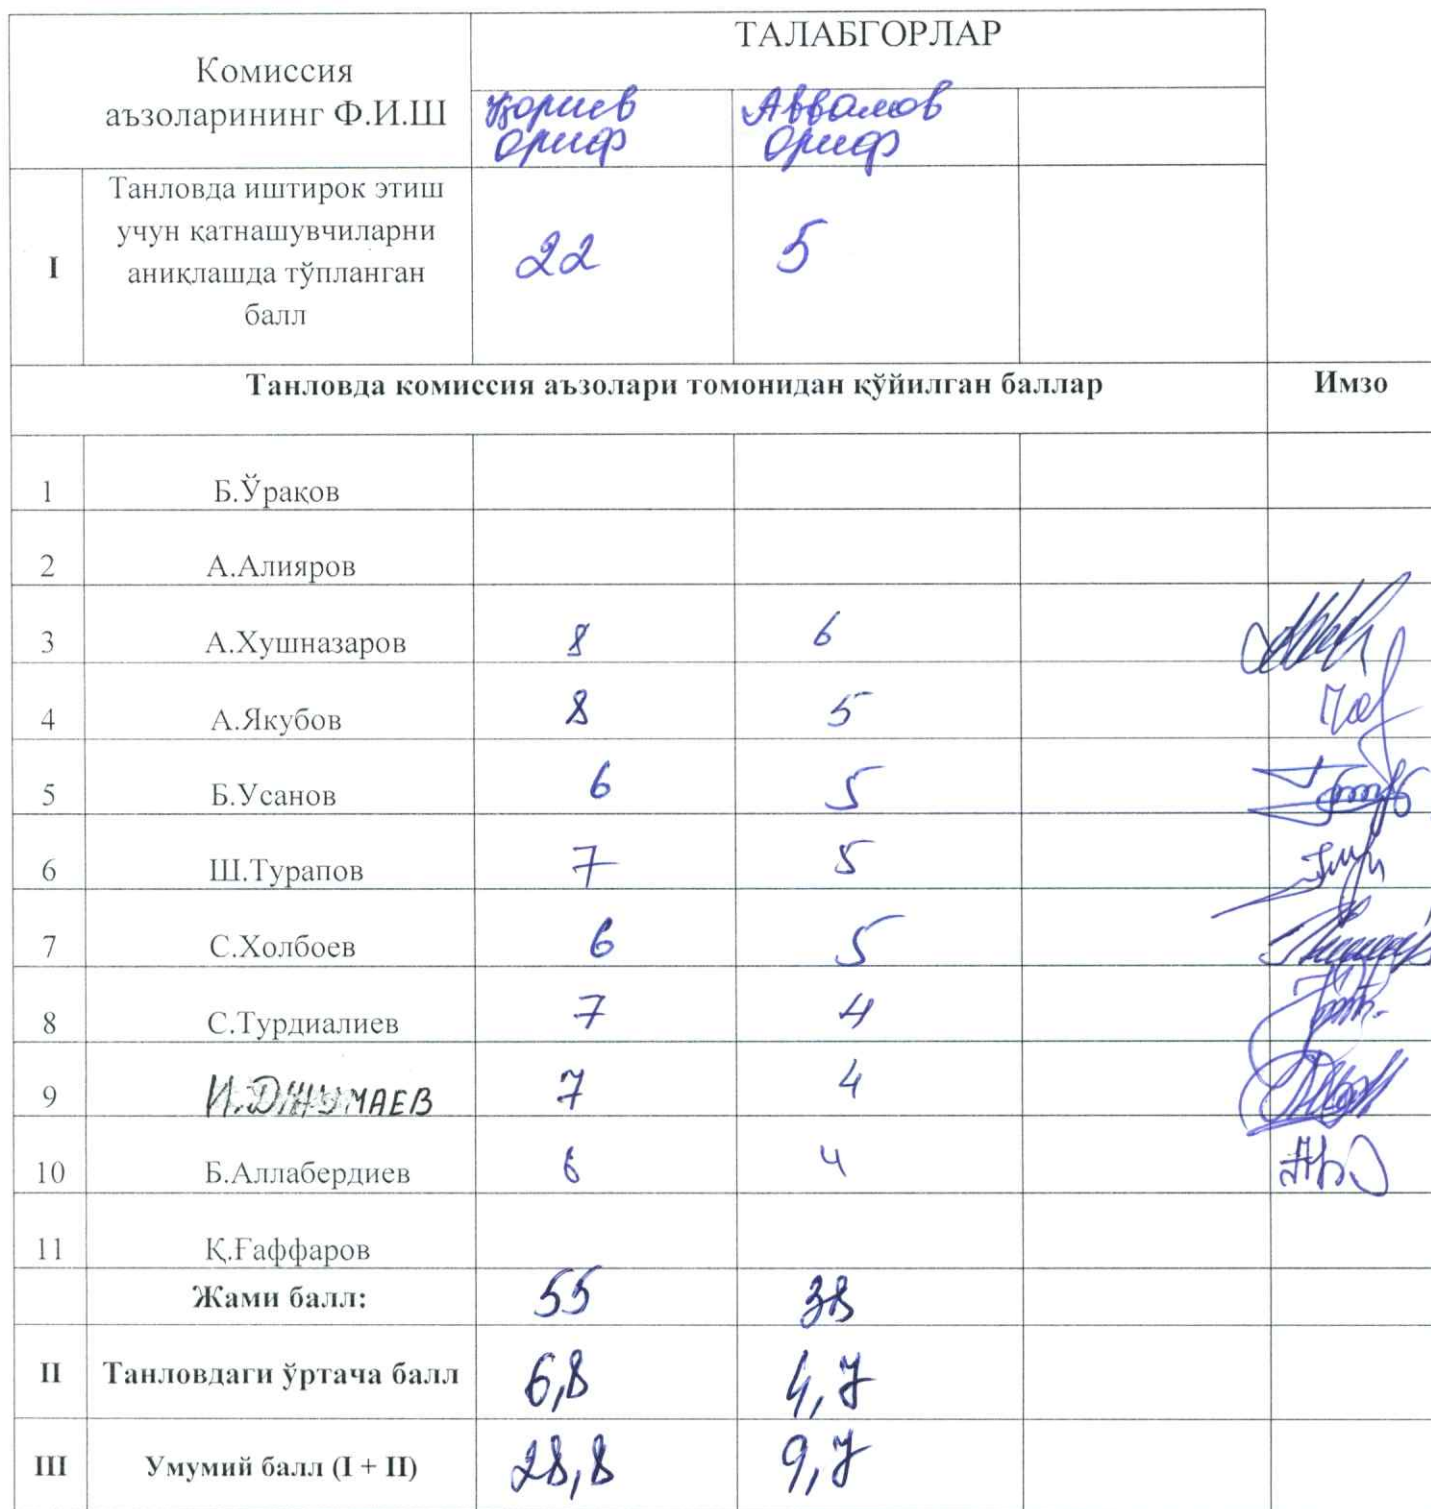 ТАЛАБГОРЛАР
Комиссия
аъзоларининг Ф.И.Ш
Қориев Ориф
Аввалов Ориф
I
Танловда иштирок этиш
учун қатнашувчиларни
аниқлашда тўпланган
балл
22 5
Танловда комиссия аъзолари томонидан қўйилган баллар Имзо
1 Б.Ўрақов
2 А.Алияров
3 А.Хушназаров 8 6
4 А.Якубов 8 5
5 Б.Усанов 6 5
6 Ш.Турапов 7 5
7 С.Холбоев 6 5
8 С.Турдиалиев 7 4
9 И.ДЖУМАЕВ 7 4
10 Б.Аллабердиев 6 4
11 Қ.Ғаффаров
Жами балл: 55 38
II Танловдаги ўртача балл 6,8 4,7
III Умумий балл (I + II) 28,8 9,7